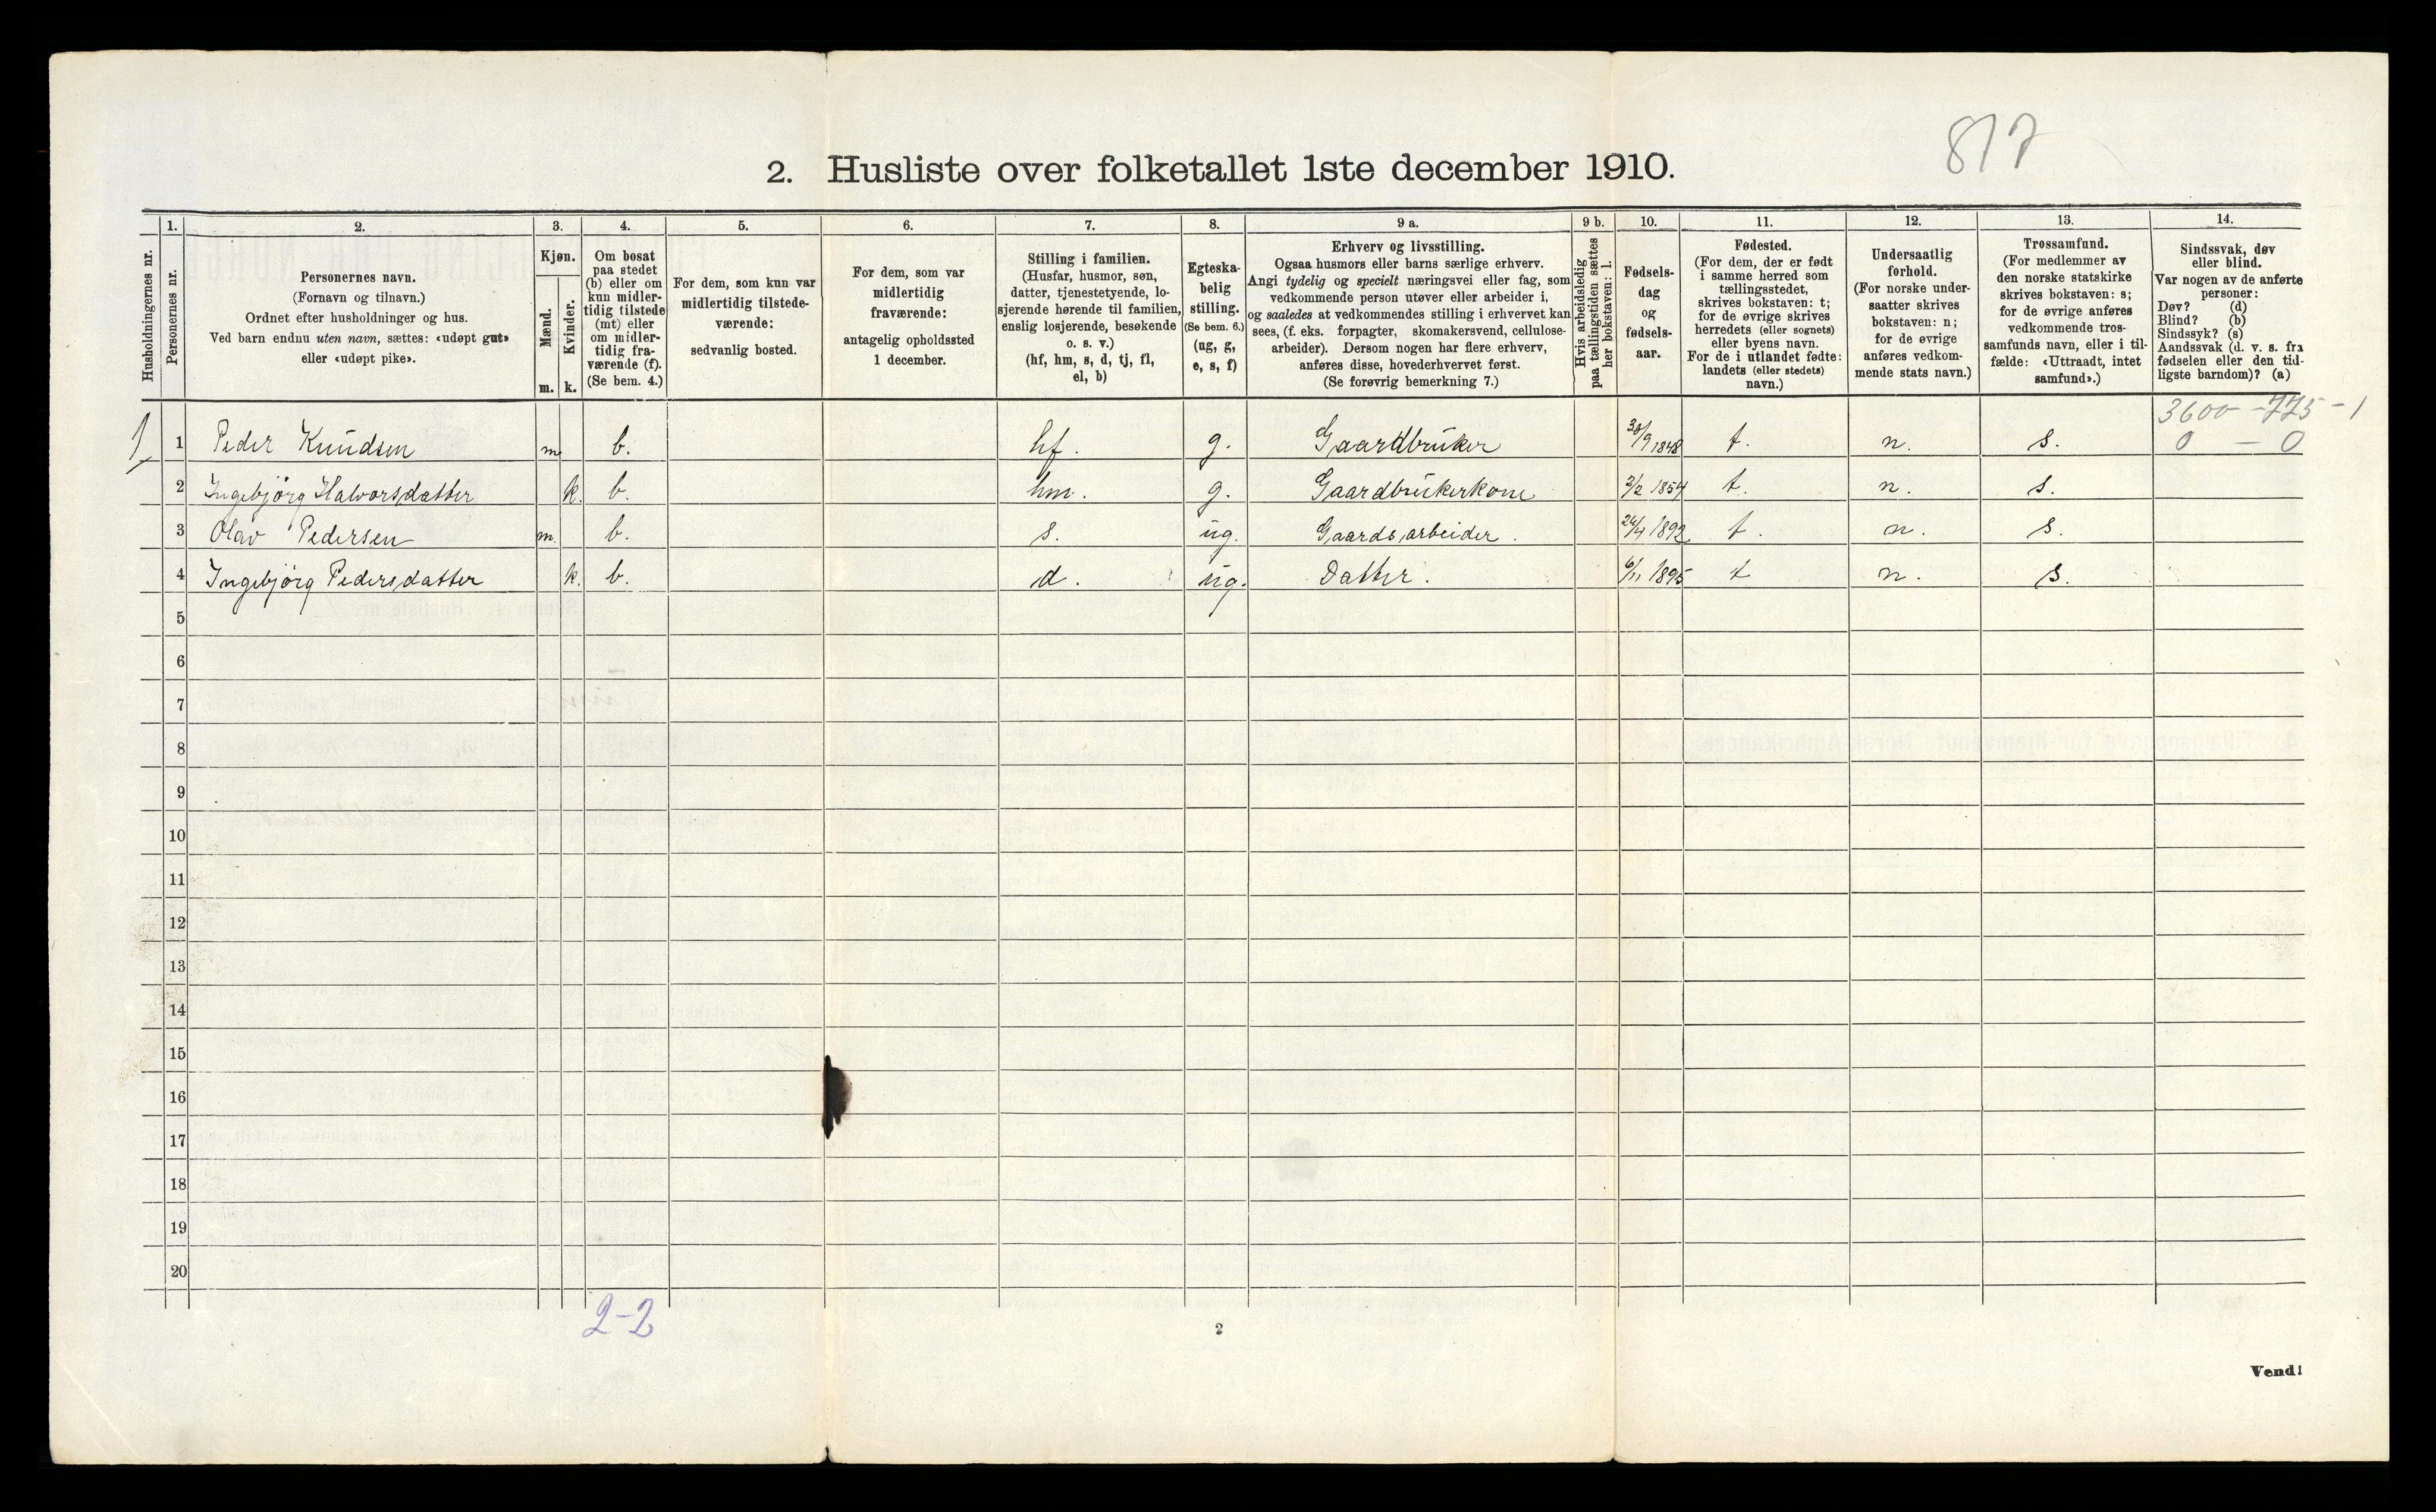 817
2. Husliste over folketallet 1ste december 1910.
Husholdningernes nr.
1.
Personernes nr.
2.
Personernes navn.
(Fornavn og tilnavn.)
Ordnet efter husholdninger og hus.
Ved barn endnu uten navn, sættes: «udøpt gut»
eller «udøpt pike».
3.
Kjøn.
Mænd.
Kvinder.
m.
k.
4.
Om bosat
paa stedet
(b) eller om
kun midler-
tidig tilstede
(mt) eller
om midler-
tidig fra-
værende (f).
(Se bem. 4.)
5.
For dem, som kun var
midlertidig tilstede-
værende:
sedvanlig bosted.
6.
For dem, som var
midlertidig
fraværende:
antagelig opholdssted
1 december.
7.
Stilling i familien.
(Husfar, husmor, søn,
datter, tjenestetyende, lo-
sjerende hørende til familien,
enslig losjerende, besøkende
o. s. v.)
(hf, hm, s, d, tj, fl,
el, b)
8.
Egteska-
belig
stilling.
(Se bem. 6.)
(ug, g,
e, s, f)
9 a.
Erhverv og livsstilling.
Ogsaa husmors eller barns særlige erhverv.
Angi tydelig og specielt næringsvei eller fag, som
vedkommende person utøver eller arbeider i,
og saaledes at vedkommendes stilling i erhvervet kan
sees, (f. eks. forpagter, skomakersvend, cellulose-
arbeider). Dersom nogen har flere erhverv,
anføres disse, hovederhvervet først.
(Se forøvrig bemerkning 7.)
9 b.
Hvis arbeidsledig
paa tællingstiden sættes
her bokstaven: l.
10.
Fødsels-
dag
og
fødsels-
aar.
11.
Fødested.
(For dem, der er født
i samme herred som
tællingsstedet,
skrives bokstaven: t;
for de øvrige skrives
herredets (eller sognets)
eller byens navn.
For de i utlandet fødte:
landets (eller stedets)
navn.)
12.
Undersaatlig
forhold.
(For norske under-
saatter skrives
bokstaven: n;
for de øvrige
anføres vedkom-
mende stats navn.)
13.
Trossamfund.
(For medlemmer av
den norske statskirke
skrives bokstaven: s;
for de øvrige anføres
vedkommende tros-
samfunds navn, eller i til-
fælde: «Uttraadt, intet
samfund».)
14.
Sindssvak, døv
eller blind.
Var nogen av de anførte
personer:
Døv? (d)
Blind? (b)
Sindssyk? (s)
Aandssvak (d. v. s. fra
fødselen eller den tid-
ligste barndom)? (a)
3600 - 775 - 1
0 - 0
1 1 Peder Knudsen m b. hf. g. Gaardbruker 30/9 1848 t. n. s.
2 Ingebjörg Halvorsdatter k. b. hm. g. Gaardbrukerkone 2/2 1854 t. n. s.
3 Olav Pedersen m. b. s. ug. Gaardsarbeider. 24/4 1892 t. n. s.
4 Ingebjörg Pedersdatter k. b. d. ug. Datter. 6/11 1895 t n. s.
5
6
7
8
9
10
11
12
13
14
15
16
17
18
19
20
2-2
2
Vend!